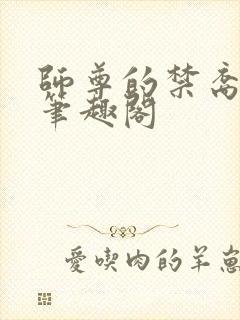 師尊的禁
筆趣閣
愛喫肉的羊